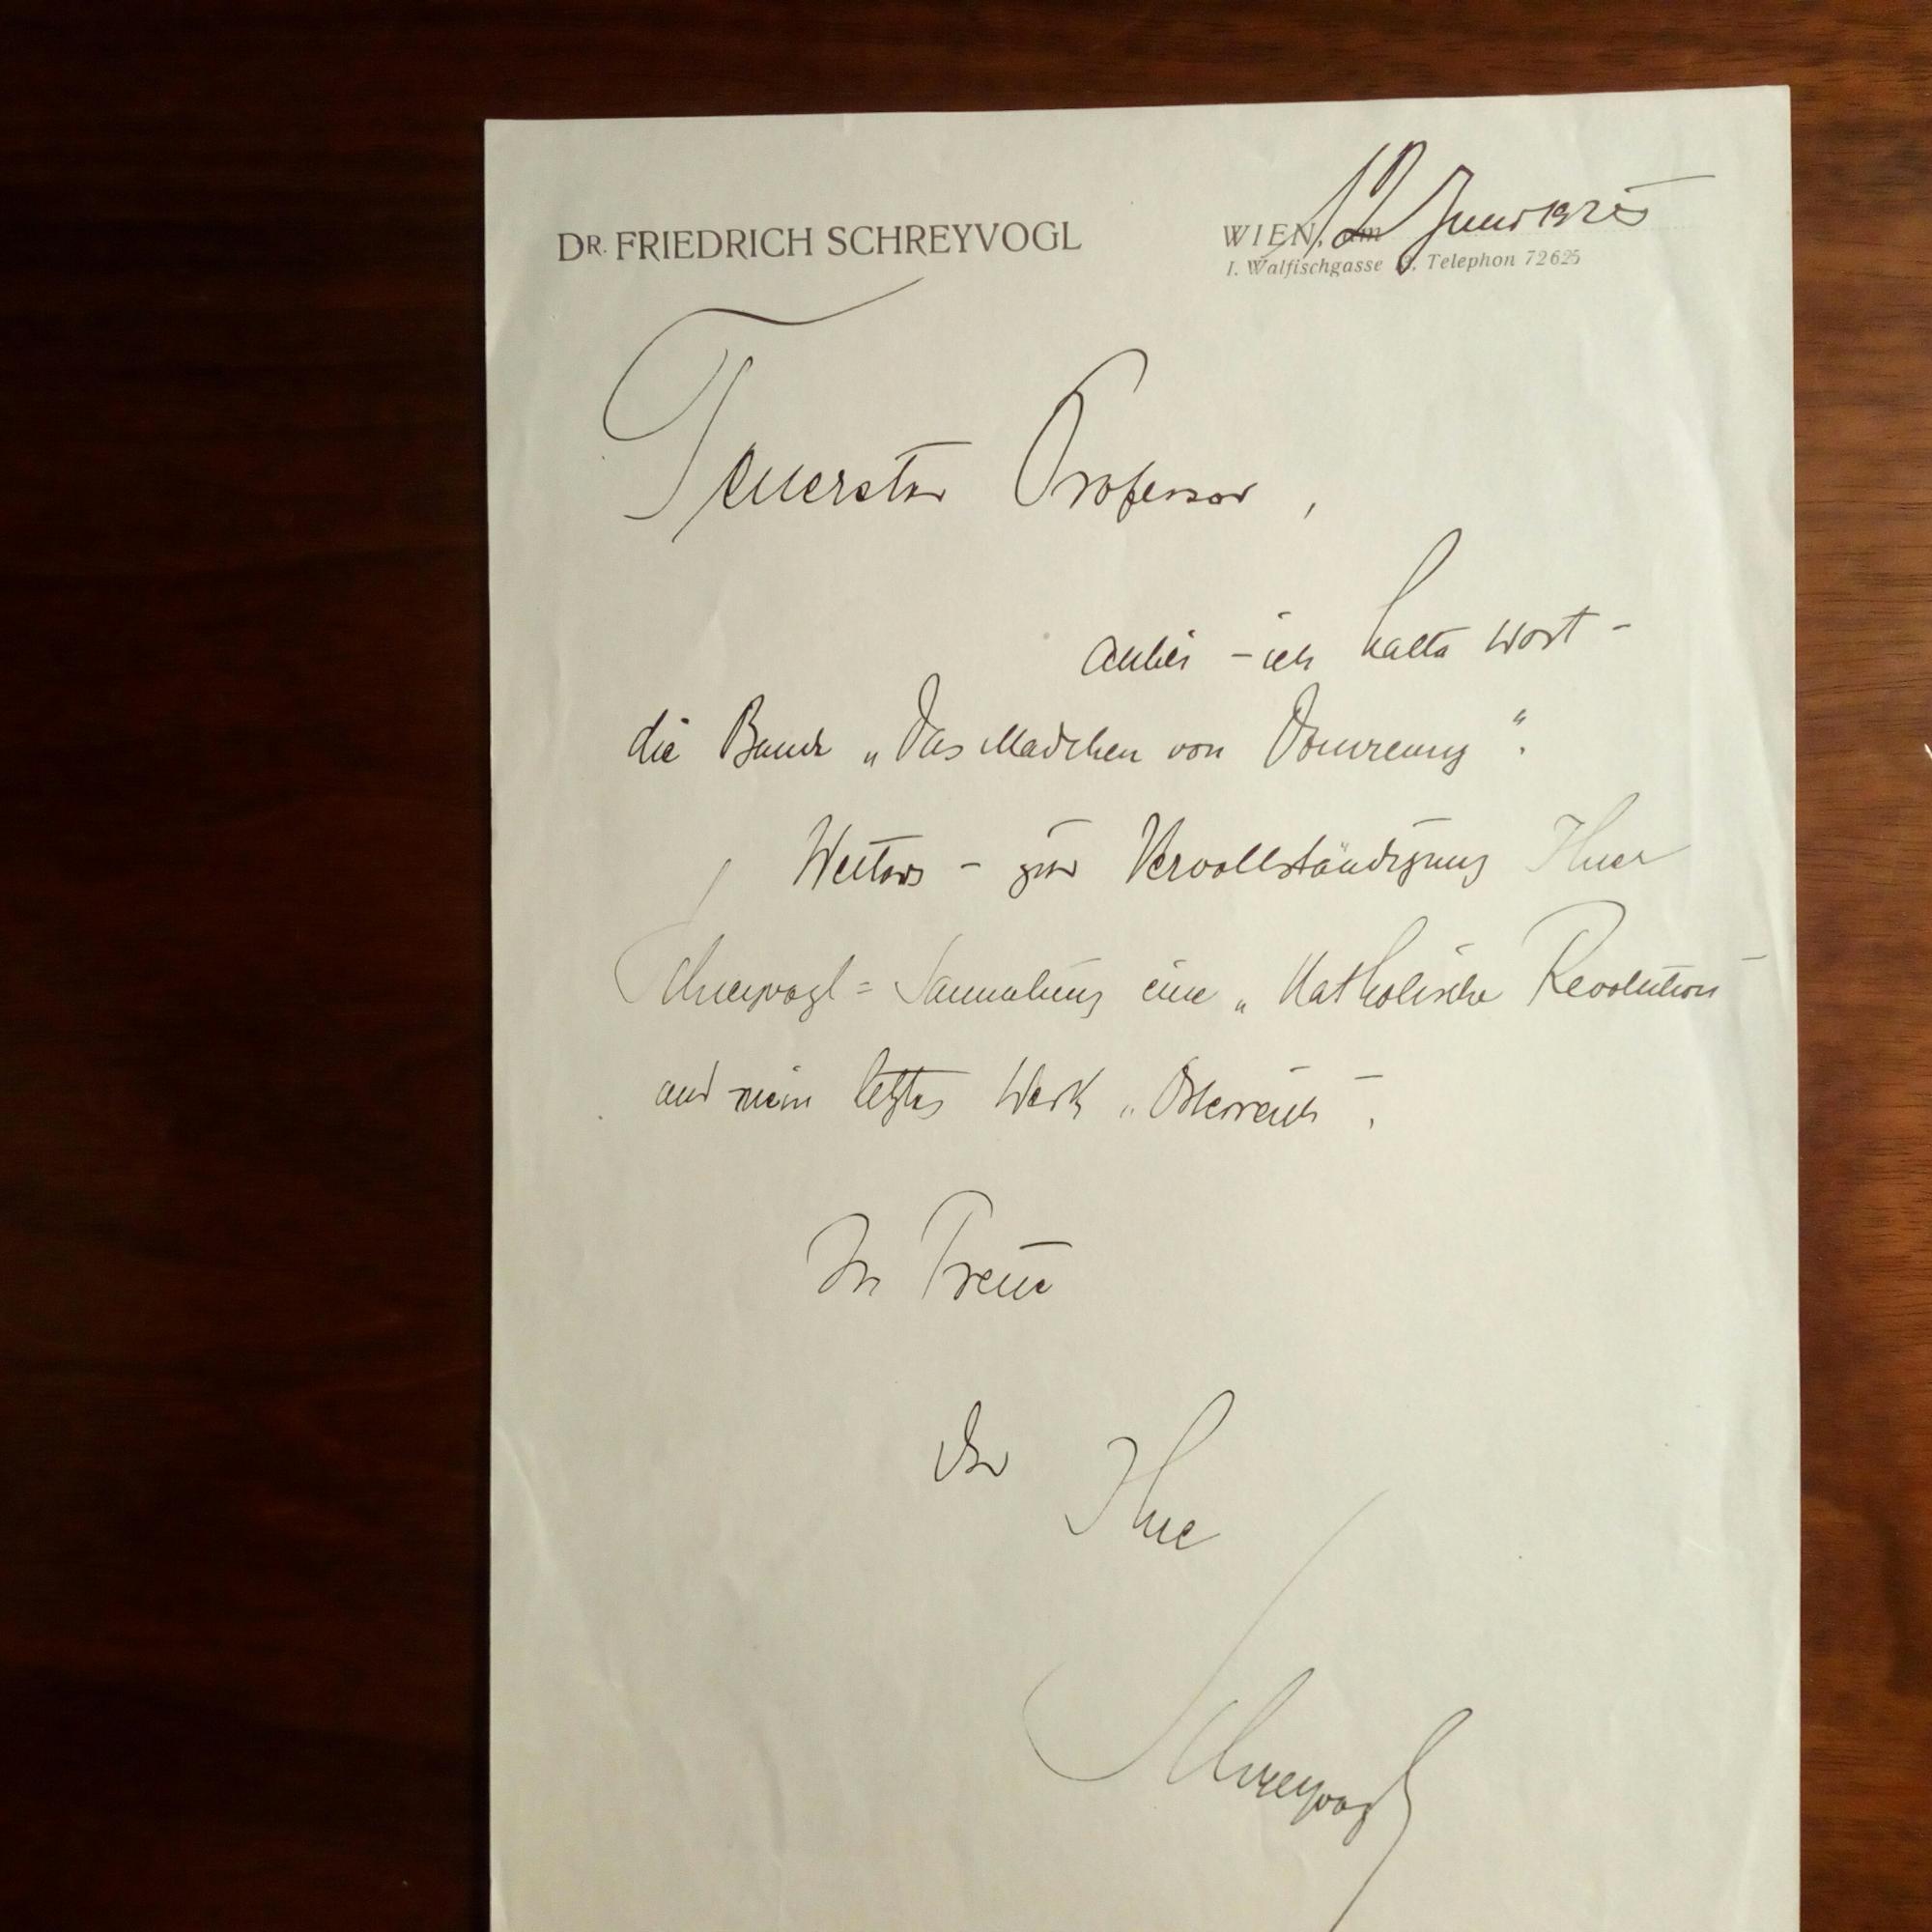 DR. FRIEDRICH SCHREYVOGL
WIEN, am 12 Juni 1925
I. Walfischgasse Telephon 72625
Teuerster Professor,
anbei – ich halte Wort –
die Bände „Das Mädchen von Domremy“.
Weiters – zur Vervollständigung Ihrer
Schreyvogl=Sammlung eine „Katholische Revolution“
und mein letztes Werk „Österreich“.
In Treue
der Ihre
Schreyvogl